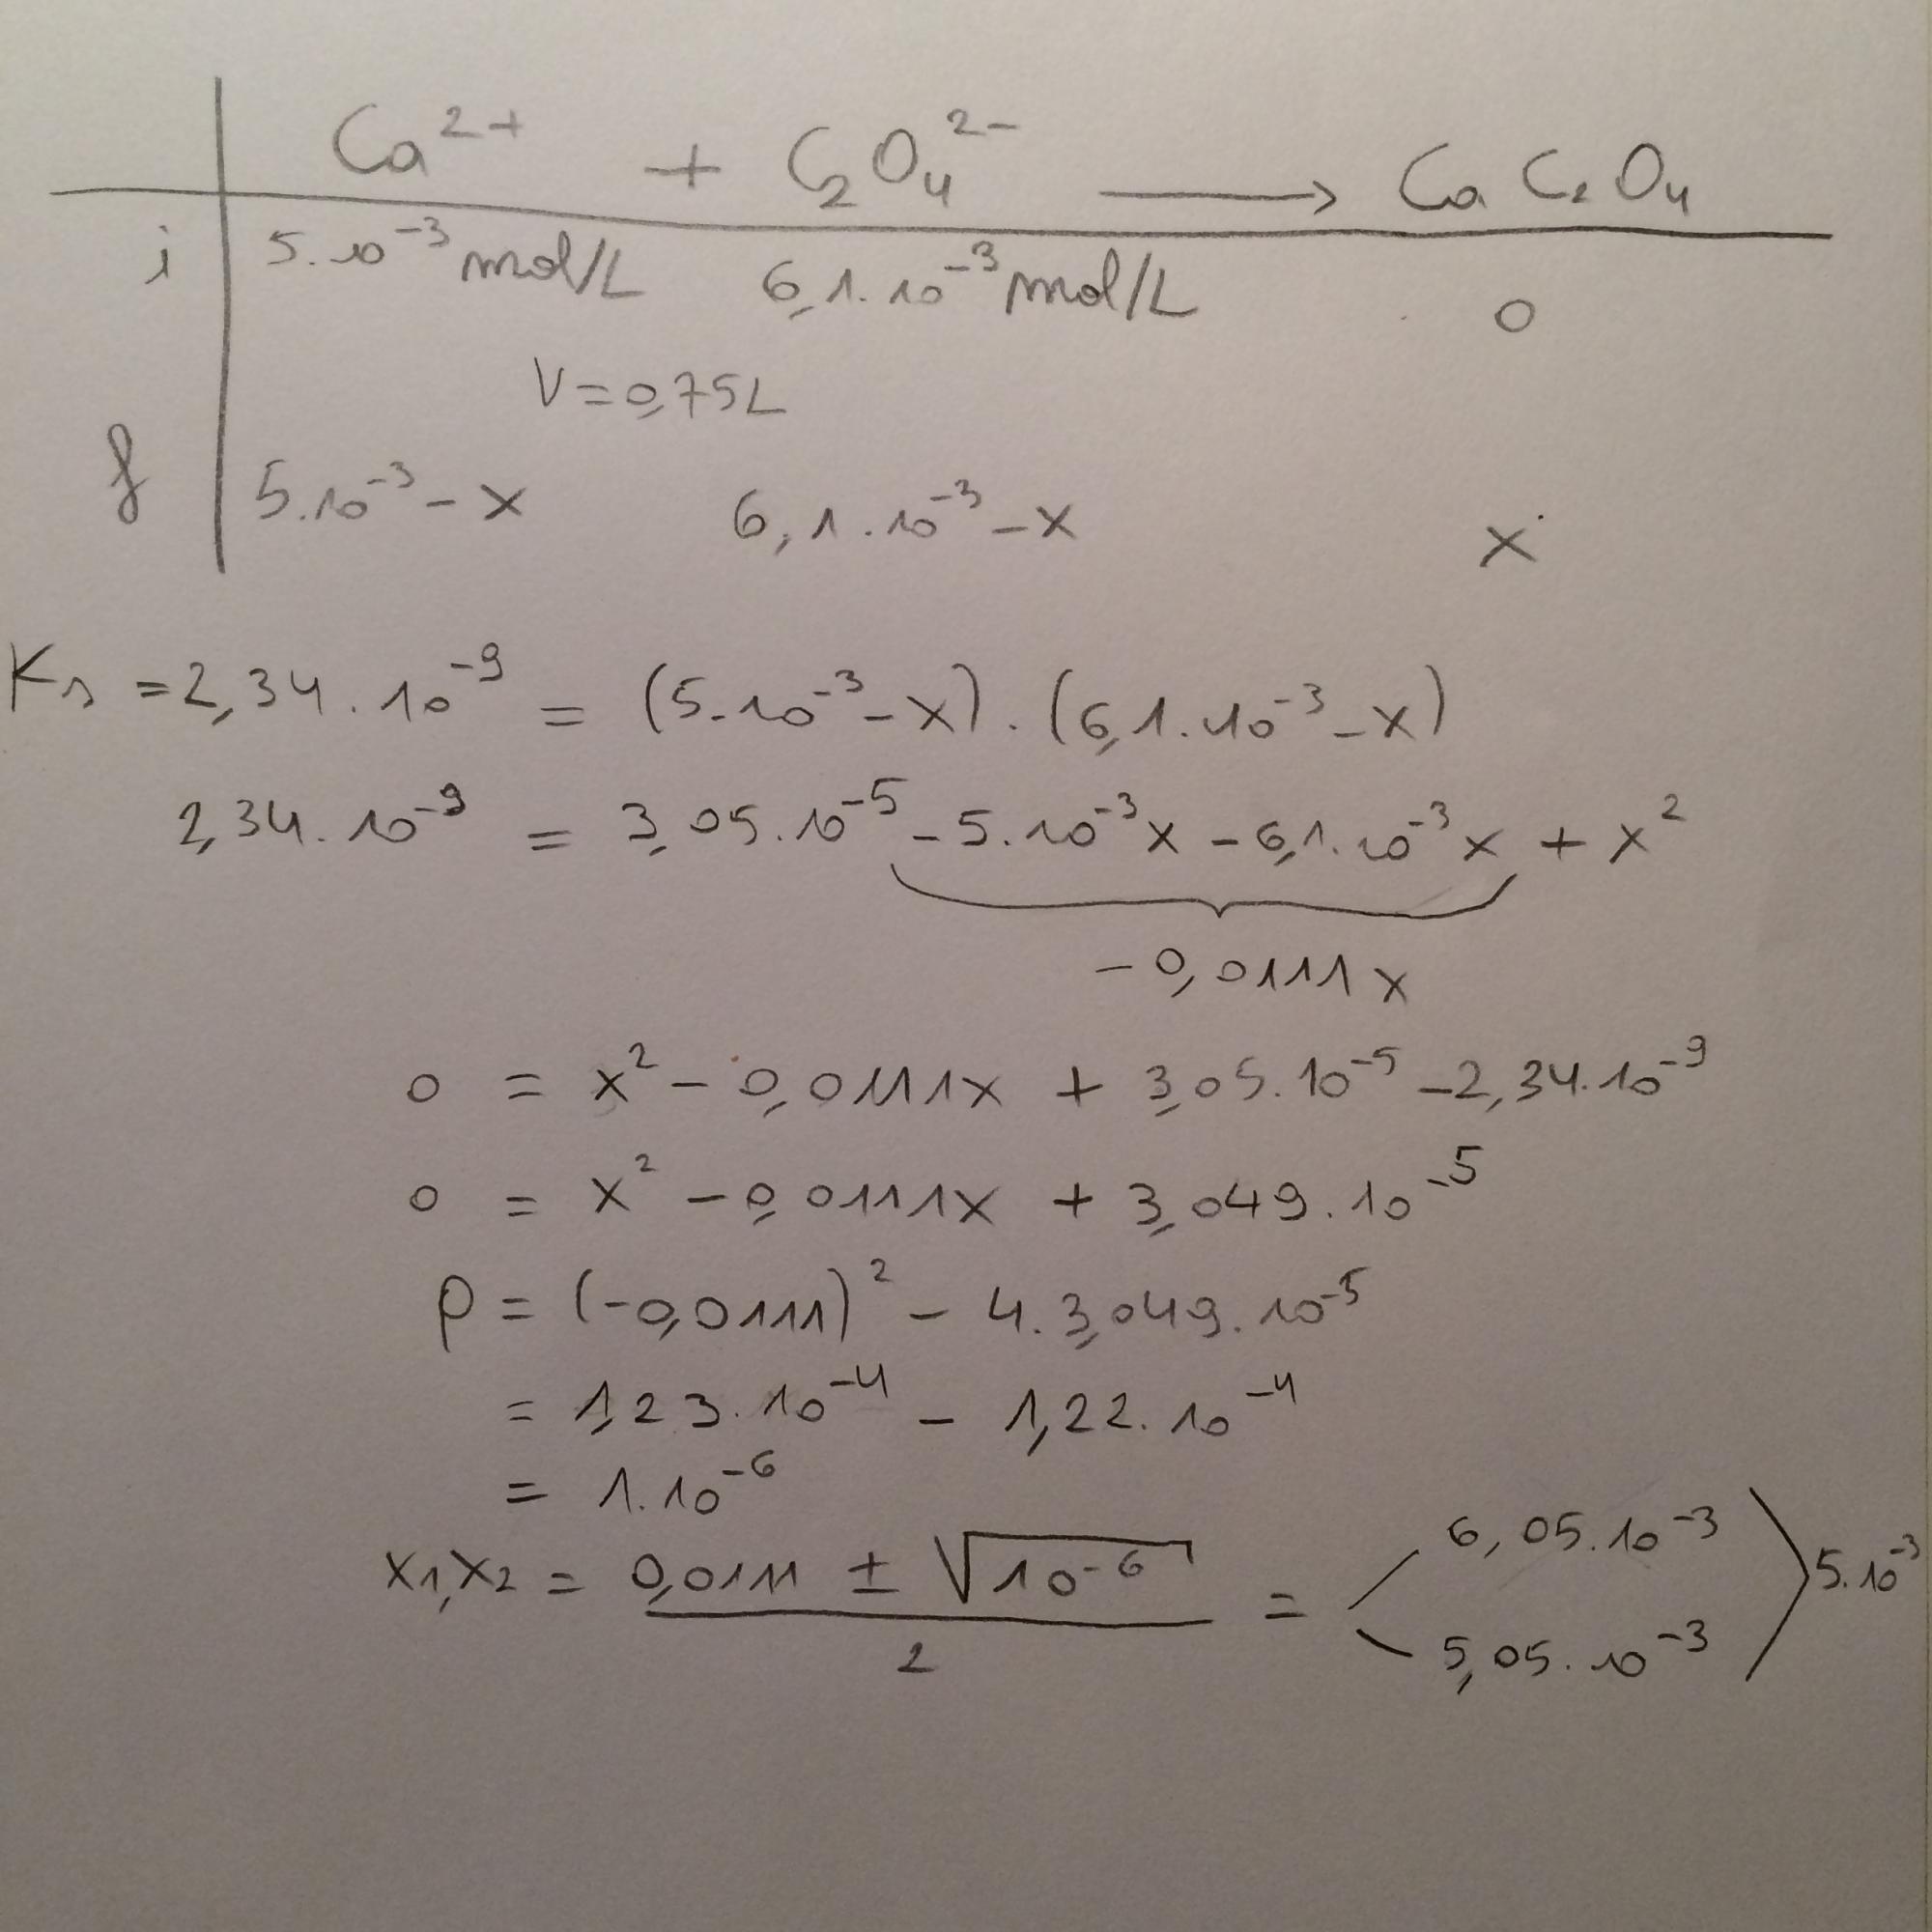 Ca²⁺ + C₂O₄²⁻ ⟶ CaC₂O₄
i 5.10⁻³ mol/L 6,1.10⁻³ mol/L 0
V = 0,75L
f 5.10⁻³ - x 6,1.10⁻³ - x x
Ks = 2,34.10⁻⁹ = (5.10⁻³ - x).(6,1.10⁻³ - x)
2,34.10⁻⁹ = 3,05.10⁻⁵ - 5.10⁻³x - 6,1.10⁻³x + x²
- 0,0111x
0 = x² - 0,0111x + 3,05.10⁻⁵ - 2,34.10⁻⁹
0 = x² - 0,0111x + 3,049.10⁻⁵
ρ = (-0,0111)² - 4.3,049.10⁻⁵
= 1,23.10⁻⁴ - 1,22.10⁻⁴
= 1.10⁻⁶
x₁,x₂ = (0,0111 ± √10⁻⁶) / 2 = 6,05.10⁻³ 5,05.10⁻³ 5.10⁻³